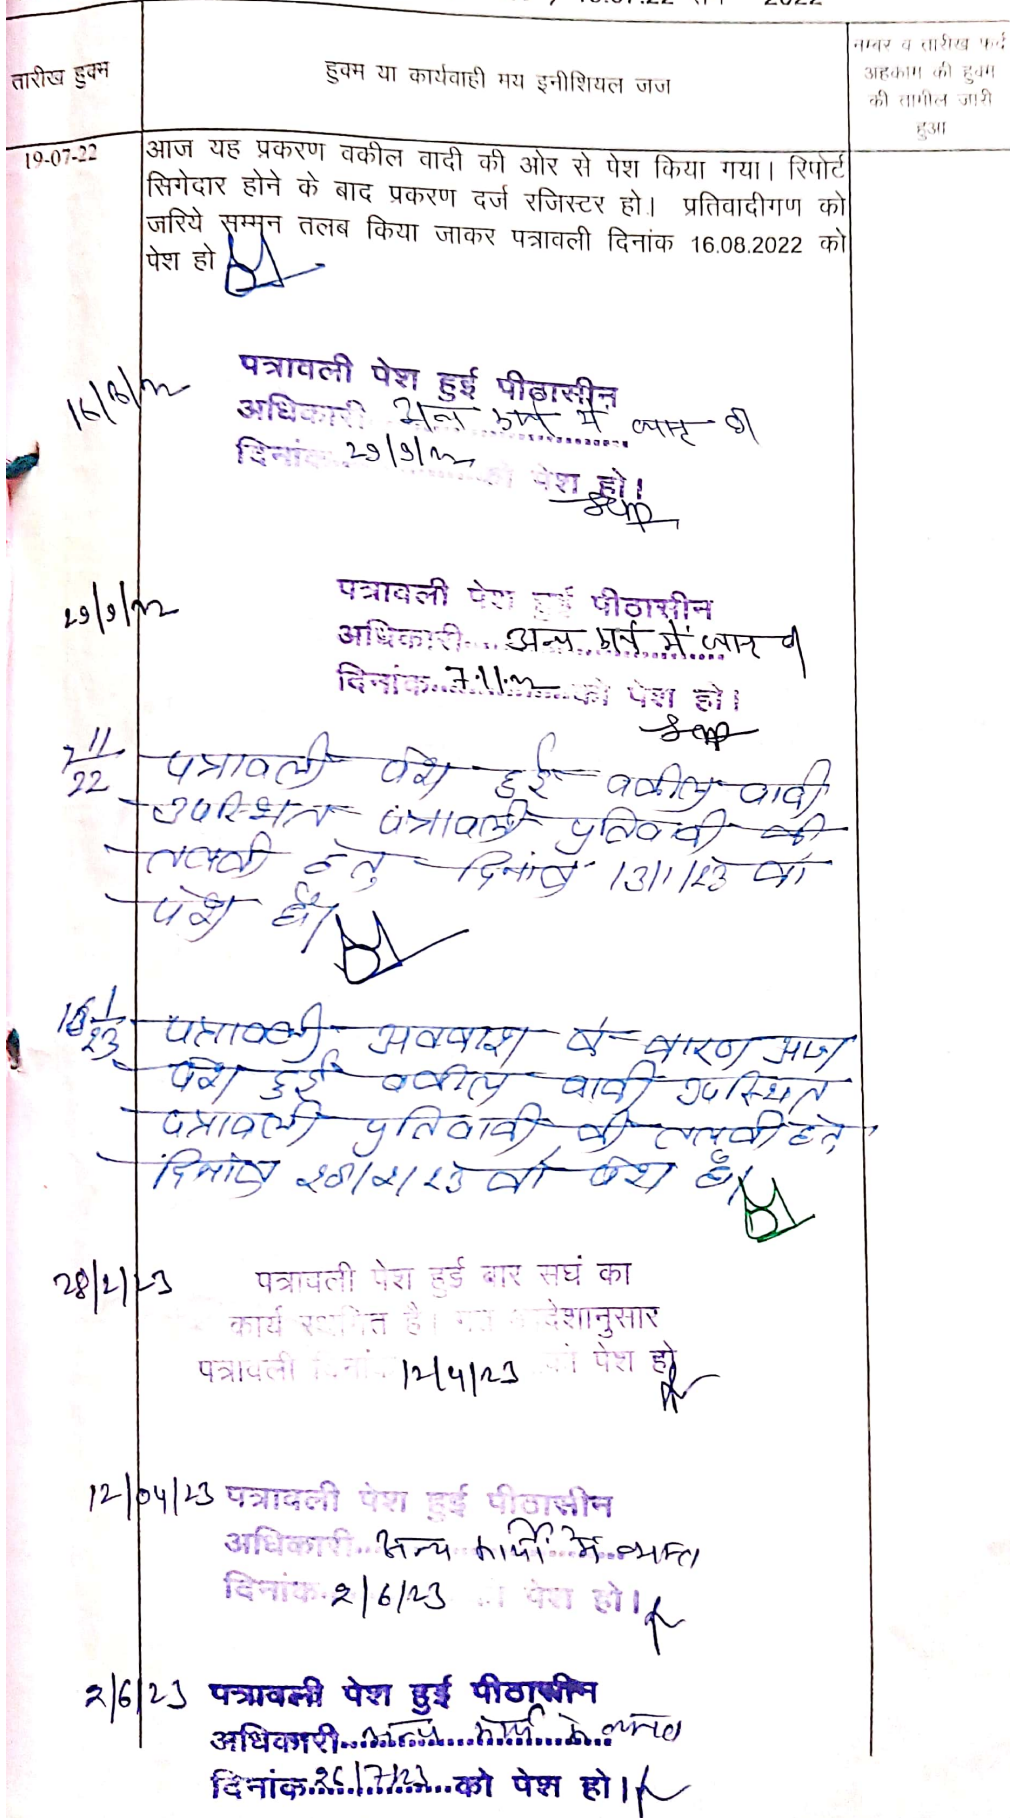 2022
तारीख हुक्म
हुक्म या कार्यवाही मय इनीशियल जज
नम्बर व तारीख फर्द
अहकाम की हुक्म
की तामील जारी
हुआ
19-07-22
आज यह प्रकरण वकील वादी की ओर से पेश किया गया। रिपोर्ट
सिगेदार होने के बाद प्रकरण दर्ज रजिस्टर हो। प्रतिवादीगण को
जरिये सम्मन तलब किया जाकर पत्रावली दिनांक 16.08.2022 को
पेश हो
16/8/22
पत्रावली पेश हुई पीठासीन
अधिकारी अन्य कार्य में व्यस्त
दिनांक 29/9/22
को पेश हो।
29/9/22
पत्रावली पेश हुई पीठासीन
अधिकारी... अन्य कार्य में व्यस्त
दिनांक 7.11.22 को पेश हो।
7/11/22 पत्रावली पेश हुई वकील वादी
उपस्थित पत्रावली प्रतिवादी की
तलबी हेतु दिनांक 13/1/23 को
पेश हो।
पत्रावली अवकाश के कारण आज
पेश हुई वकील वादी उपस्थित
पत्रावली प्रतिवादी की तलबी हेतु
दिनांक 28/2/23 को पेश हो।
28/2/23
पत्रावली पेश हुई बार सघं का
कार्य स्थगित है। गत आदेशानुसार
पत्रावली दिनांक 12/4/23 को पेश हो
12/04/23 पत्रावली पेश हुई पीठासीन
अधिकारी.. अन्य कार्यो में व्यस्त
दिनांक 2/6/23 को पेश हो।
2/6/23 पत्रावली पेश हुई पीठासीन
अधिकारी... अन्य कार्य में व्यस्त
दिनांक 26/7/23 को पेश हो।